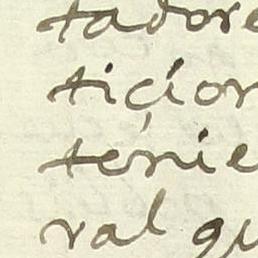 tadore
tiçion
tenie
ral qu